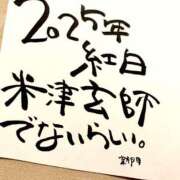 2025年
紅白
米津玄師
でないらしい。